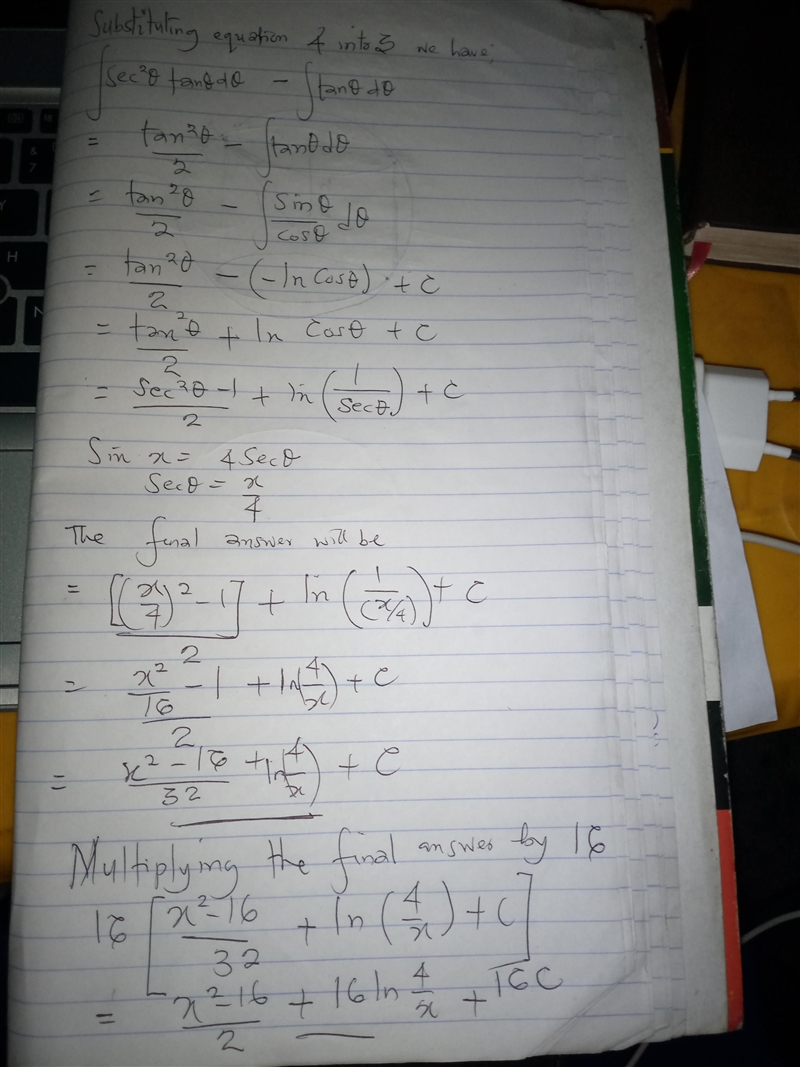 Substituting equation 4 into 3 we have;
∫sec²θ tanθ dθ - ∫tanθ dθ
= tan²θ/2 - ∫tanθ dθ
= tan²θ/2 - ∫sinθ/cosθ dθ
= tan²θ/2 - (-ln cosθ) + c
= tan²θ/2 + ln cosθ + c
= sec²θ - 1/2 + ln(1/secθ) + c
Sin x = 4 Secθ
Secθ = x/4
The final answer will be
= [(x/4)² - 1]/2 + ln(1/(x/4)) + c
= x²/16 - 1/2 + ln 4/x) + c
= x² - 16/32 + ln 4/x) + c
Multiplying the final answer by 16
16 [x² - 16/32 + ln(4/x) + C]
= x² - 16/2 + 16 ln 4/x + 16C